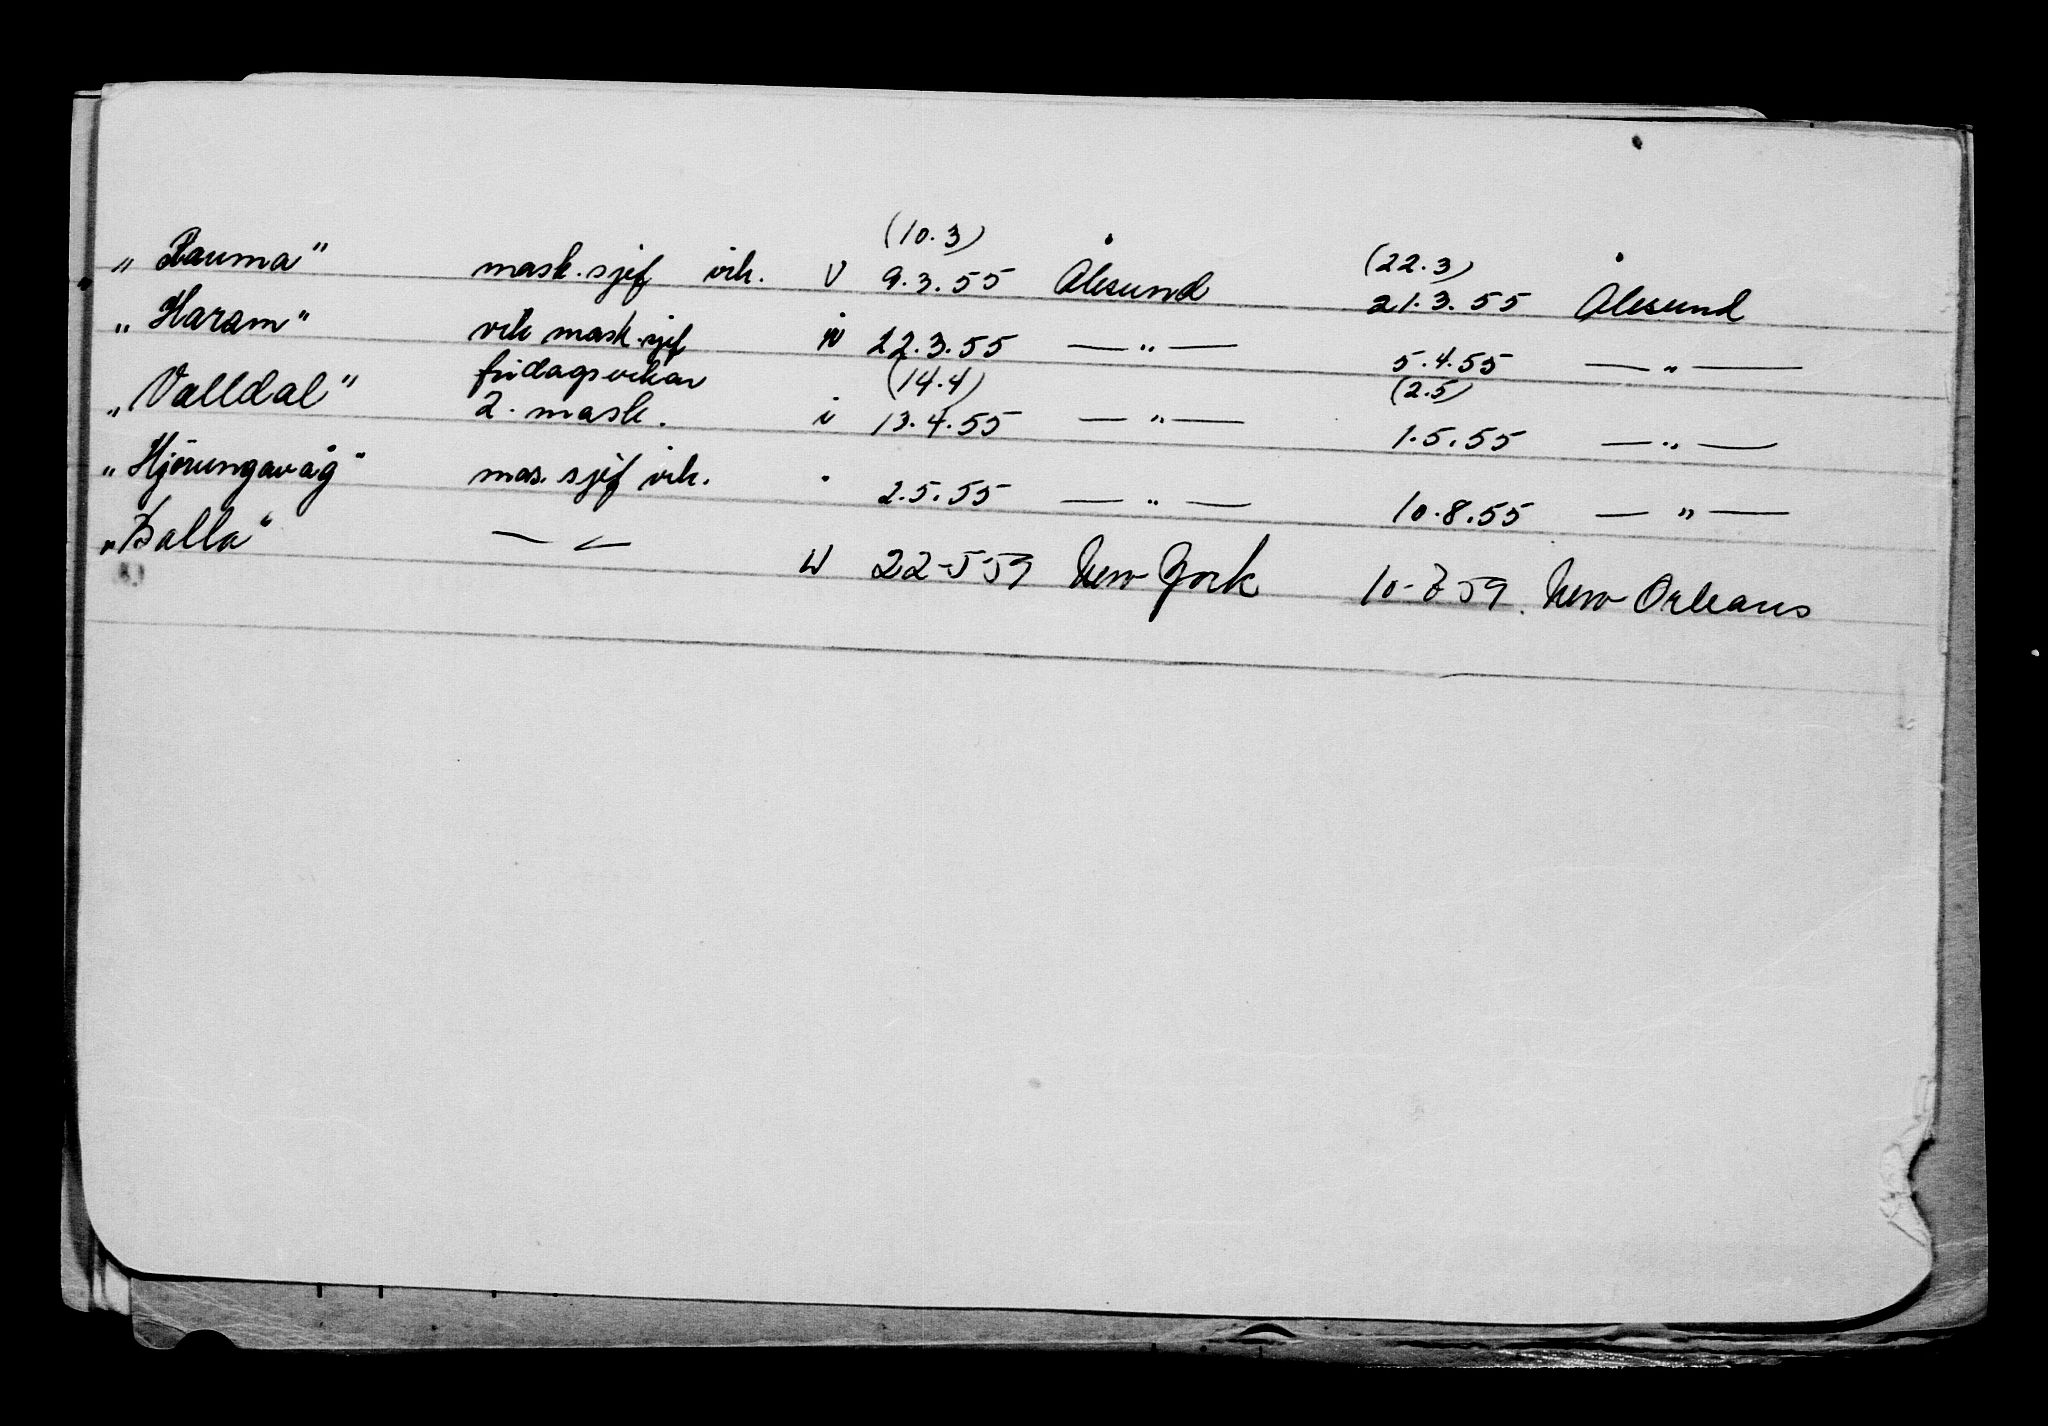 (10.3) (22.3)
„ Rauma" mask.sjef vik. V 9.3.55 Ålesund 21.3.55 Ålesund
„ Haram" vik mask.sjef 22.3.55 — „ — 5.4.55 — „ —
fridagsvikar (14.4) (2.5)
„ Valldal" 2. mask. i 13.4.55 — „ — 1.5.55 — „ —
„ Hjørungavåg" mas. sjef vik. 2.5.55 — „ — 10.8.55 — „ —
„ Balla" 22-5-59 New York 59 New Orleans